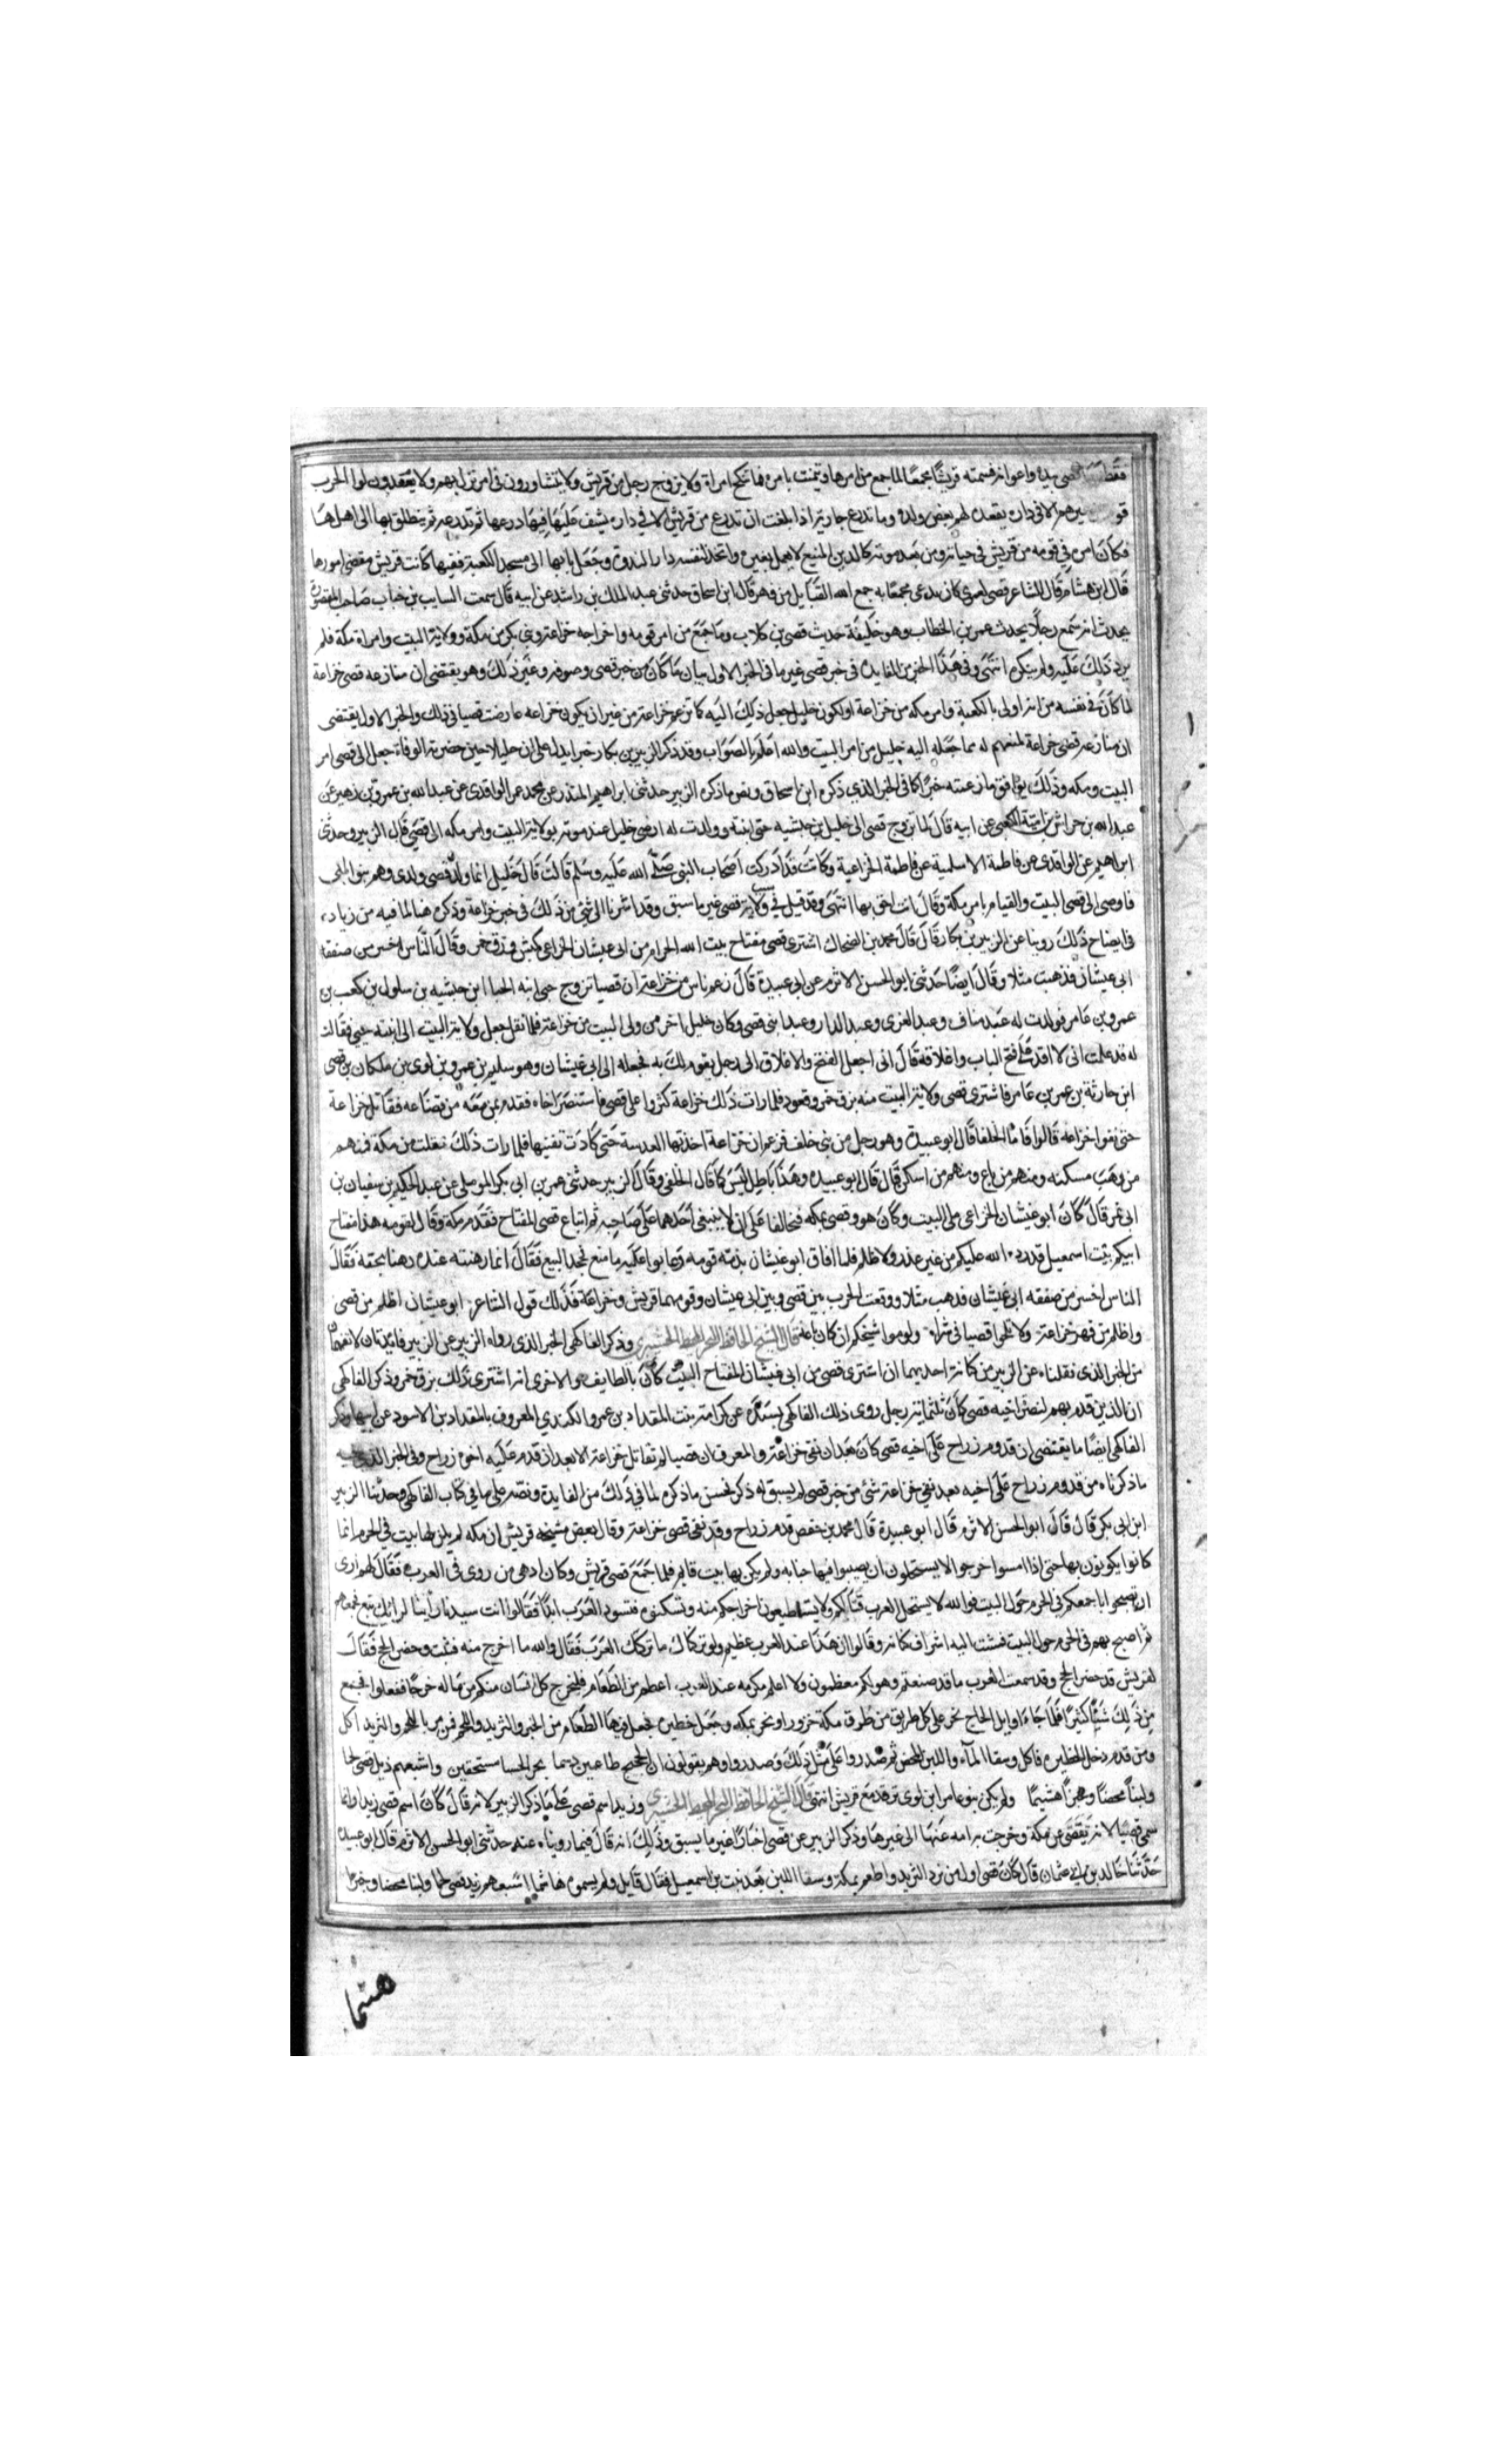 قصى بيده واعوانه فسمته قريشا مجمعا لما جمع من امرها وتيمنت بامره فما تنكح امراة ولا يتزوج رجل من قريش ولا يتشاورون فى امر نزل بهم ولا يعقدون لوا الحرب
قو غيرهم الا فى داره يعقده لهم بعض ولده وما تدرع جارية اذا بلغت ان تدرع من قريش الا في داره يشف عليها فيها درعها ثم تدرعه ثم ينطلق بها الى اهلها
فكان امره في قومه من قريش فى حياته ومن بعد موته كالدين المتبع لا يعمل بغيره واتخذ لنفسه دار الندوة وجعل بابها الى مسجد الكعبة ففيها كانت قريش تقضى امورها
قال ابن هشام قال الشاعر قصى لعمرى كان يدعى مجمعا به جمع الله القبايل من فهر قال ابن اسحاق حدثنى عبد الملك بن راشد عن ابيه قال سمعت السايب بن خباب صاحب المقصورة
يحدث انه سمع رجلا يحدث عمر بن الخطاب وهو خليفة حديث قصى بن كلاب وما جمع من امر قومه واخراجه خزاعة وبنى بكر من مكة وولاية البيت وامر مكة فلم
يرد ذلك عليه ولم ينكره انتهى وفى هذا الخبر من الفايدة فى خبر قصى غير ما فى الخبر الاول بيان ما كان من خبر قصى وصوفه وغير ذلك وهو يقتضى ان منازعة قصى خزاعة
لما كان فى نفسه من انه اولى بالكعبة وامر مكه من خزاعة او لكون حليل جعل ذلك اليه كما تزعم خزاعة من غير ان يكون خزاعه عارضت قصيا فى ذلك والخبر الاول يقتضى
ان منازعة قصى خزاعة لمنعهم له مما جعله اليه حليل من امر البيت والله اعلم بالصواب وقد ذكر الزبير بن بكار خبرا يدل على ان حليلا حين حضرته الوفاة جعل الى قصى امر
البيت ومكه وذلك يوافق ما زعمته خزاعة كما فى الخبر الذي ذكره ابن اسحاق ونص ما ذكره الزبير حدثنى ابراهيم المنذر عن محمد عمر الواقدى عن عبد الله بن عمرو بن زهير عن
عبد الله بن خراش بن امية الكعبى عن ابيه قال لما تزوج قصى الى حليل بن حبشيه حبى ابنته وولدت له اوصى حليل عند موته بولاية البيت وامر مكه الى قصى قال الزبير وحدثنى
ابراهيم عن الواقدى عن فاطمة الاسلمية عن فاطمة الخزاعية وكانت قد ادركت اصحاب النبى صلى الله عليه وسلم قالت قال حليل انما ولد قصى ولدى وهم بنو ابنتى
فاوصى الى قصى البيت والقيام بامر مكة وقال انت احق بها انتهى وقد قيل فى سبب ولاية قصى غير ما سبق وقد اشرنا الى شئ من ذلك فى خبر خزاعة وذكره هنا لما فيه من زيادة
فى ايضاح ذلك روينا عن الزبير بن بكار قال قال محمد بن الضحاك اشترى قصى مفتاح بيت الله الحرام من ابى عبشان الخزاعى بكبش وزق خمر وقال الناس اخسر من صفقة
ابى عبشان فذهبت مثلا وقال ايضا حدثنى ابو الحسن الاثرم عن ابى عبيدة قال زعم ناس من خزاعة ان قصيا تزوج حبى ابنه بن حبشيه بن سلول بن كعب بن
عمرو بن عامر فولدت له عبد مناف وعبد العزى وعبد الدار وعبدا بنى قصى وكان حليل اخر من ولى البيت من خزاعة فلما ثقل جعل ولاية البيت الى ابنته حبى فقالت
له قد علمت انى لا اقدر على فتح الباب واغلاقه قال انى اجعل الفتح والاغلاق الى رجل يقوم لك به فجعله الى ابى غبشان وهو سليم بن عمرو بن لوى بن ملكان بن قصى
ابن حارثة بن عمر بن عامر فاشترى قصى ولاية البيت منه بزق خمر وقعود فلما رات ذلك خزاعة كثروا على قصى فاستنصر اخاه فقدم بمن معه من قضاعه فقاتل خزاعة
حتى نفوا خزاعه قالوا فاما الخلفا قال ابو عبيدة وهو رجل من بنى خلف فزعم ان خزاعة اخذتها العدسة حتى كادت تفنيها فلما رات ذلك نقلت من مكة فمنهم
من وهب مسكنه ومنهم من باع ومنهم من اسكن قال قال ابو عبيده وهذا باطل ليس كما قال الخلفى وقال الزبير حدثنى عمر بن ابى بكر الموصلى عن عبد الحكيم بن سفيان بن
ابى نمر قال كان ابو غبشان الخزاعى ملى البيت وكان هو وقصى بمكه فتحالفا على ان لا يبغى احدهما على صاحبه ثم ابتاع قصى المفتاح فقدم مكة وقال لقومه هذا مفتاح
ابيكم بيت اسمعيل قد رده الله عليكم من غير غدر ولا ظلم فلما افاق ابو غبشان ندمه قومه وعابوا عليه ما صنع فجحد البيع فقال انما رهنته عنده رهنا بحقه فقال
الناس اخسر من صفقه ابى غبشان فذهب مثلا ووقعت الحرب بين قصى وبين ابى عبشان وقومهما قريش وخزاعة فذلك قول الشاعر ابو غبشان اظلم من قصى
واظلم من فهر خزاعة ولا تلحوا قصيا فى شراه ولوموا شيخكم ان كان باعه قال الشيخ الحافظ وذكر الفاكهى الخبر الذى رواه الزبير عن الزبير فايدتان لا تفهمان
من الخبر الذى نقلناه عن الزبير من كتابة احديهما ان اشترى قصى من ابى غبشان المفتاح البيت كان بالطايف والاخرى انه اشترى ذلك بزق خمر وذكر الفاكهى
ان الذين قدم بهم لنصر اخيه قصى كان ثلثماية رجل روى ذلك الفاكهى بسنده عن كرامته بنت المقداد بن عمرو الكندي المعروف بالمقداد بن الاسود عن ابيها وذكر
الفاكهى ايضا ما يقتضى ان قدوم رزاح على اخيه قصى كان بعد ان نفى خزاعة والمعرف ان قصيا لم تقاتل خزاعة الا بعد ان قدم عليه اخوه رزاح وفى الخبر الذى فيه
ما ذكرناه من قدوم رزاح على اخيه بعد نفى خزاعة شئ من خبر قصى لم يسبق له ذكر فحسن ما ذكره لما في ذلك من الفايدة ونصه على ما في كتاب الفاكهى وحدثنا الزبير
ابن ابى بكر قال قال ابو الحسن الاثرم قال ابو عبيدة قال محمد بن حفص قدم رزاح وقد نفى قصى خزاعة وقال بعض مشيخة قريش ان مكه لم يكن بها بيت في الحرم انما
كانوا يكونون بها حتى اذا امسوا خرجوا لا يستحلون ان يصيبوا فيها جنابه ولم يكن بها بيت قايم فلما جمع قصى قريش وكان ادهى من روى فى العرب فقال لهم ارى
ان تصبحوا باجمعكم فى الحرم حول البيت فوالله لا يستحل العرب قتالكم ولا يستطيعون اخراجكم منه وتسكنوه فتسود العرب ابدا فقالوا انت سيدنا راينا لرايك تبع فجمعهم
ثم اصبح بهم فى الحرم حول البيت فمشت اليه اشراف كنانة وقالوا ان هذا عند العرب عظيم ولو تركناك ما تركك العرب فقال والله ما اخرج منه فثبت وحضر الحج فقال
لقريش قد حضر الحج وقد سمعت العرب ما قد صنعتم وهم لكم معظمون ولا اعلم مكرمه عند العرب اعظم من الطعام فليخرج كل انسان منكم من ماله خرجا ففعلوا فجمع
من ذلك شئا كثيرا فلما جا اوايل الحاج نحر على كل طريق من طرق مكة جزورا ونحر بمكه وجعل حظيرة فجعل فيها الطعام من الخبز والثريد واللحم فمن مر باللحم والثريد اكل
ومن قدم دخل الحظيره فاكل وسقا الماء واللبن المحض ثم صدروا على مثل ذلك وصدروا وهم يقولون ان الحجيج طاعمين دسما واشبعهم زيد قصى لحما
ولبنا محضا وخبزا هشيما ولم يكن بنو عامر ابن لوى ترفد مع قريش انتهى قال الشيخ الحافظ وزيد اسم قصى على ما ذكر الزبير لانه قال كان اسم قصى زيدا وانما
سمى قصيا لانه تقصى عن مكة وخرجت به امه عنها الى غيرها وذكر الزبير عن قصى اخبارا غير ما يسبق وذلك انه قال فيما رويناه عنه حدثنى ابو الحسن الاثرم قال ابو عبيدة
حدثنا خالد بن ابى عثمان قال كان قصى اول من ثرد الثريد واطعم بمكة وسقا اللبن بعد نبت بن اسمعيل فقال قايل ولم يسموه هاشما اشبعهم زيد قصى لحما ولبنا محضا وخبزا
هشما